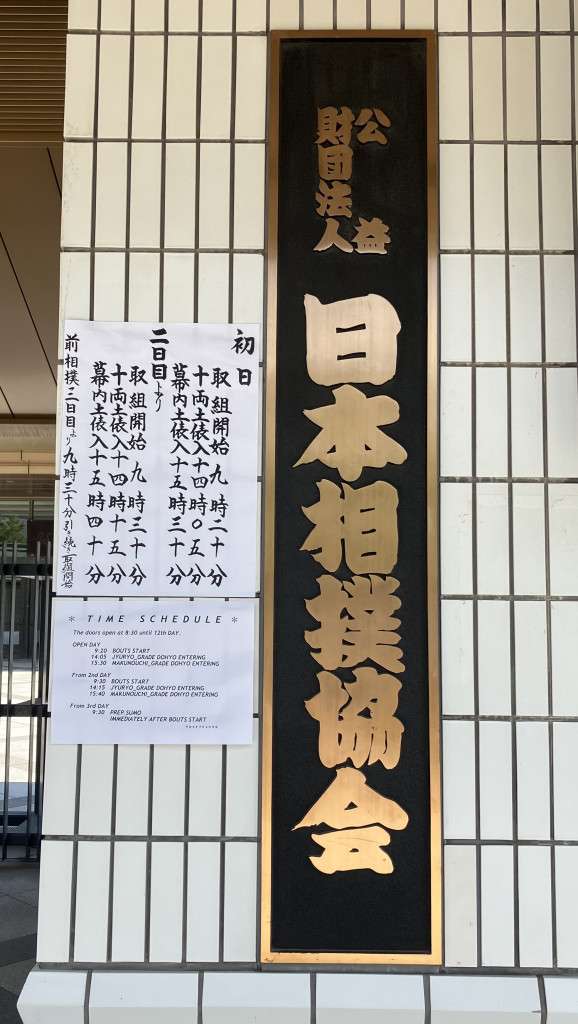 公益
財団法人
日本相撲協会
初日
取組開始九時二十分
十両土俵入十四時〇五分
幕内土俵入十五時三十分
二日目より
取組開始九時三十分
十両土俵入十四時十五分
幕内土俵入十五時四十分
前相撲三日目より九時三十分引き続き取組開始
* TIME SCHEDULE *
The doors open at 8:30 until 12th DAY.
OPEN DAY
9:20 BOUTS START
14:05 JYURYO_GRADE DOHYO ENTERING
15:30 MAKUNOUCHI_GRADE DOHYO ENTERING
From 2nd DAY
9:30 BOUTS START
14:15 JYURYO_GRADE DOHYO ENTERING
15:40 MAKUNOUCHI_GRADE DOHYO ENTERING
From 3rd DAY
9:30 PREP SUMO
IMMEDIATELY AFTER BOUTS START